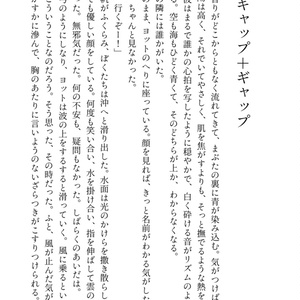 キャップ＋ギャップ
りがどこからともなく流れてきて、まぶたの裏に青が染み込む。気がつけば
は高く、それでいてやさしく、肌を焦がすよりも、そっと撫でるような熱を
波はまるで誰かの心拍を写したように穏やかで、白く砕ける音がリズムのよ
。空も海もひどく青くて、そのどちらが上か、わからなくなる。
隣には誰かがいた。
ちゃんと見なかった。
まま、ヨットのへりに座っている。顔を見れば、きっと名前がわかる気がし
行くぞー！」
帆がふくらみ、ぼくたちは沖へと滑り出した。水面は光のかけらを撒き散らし
ても優しい顔をしている。何度も笑い合い、水を掛け合い、指を伸ばして雲の
た。無邪気だった。何の不安も、疑問もなかった。しばらくのあいだは。
のようにしなり、ヨットは波の上をするすると滑っていく。風に乗るとい
ういうことなのだろう。そう思った、その時だった。ふと、風が止んだ気が
かすかに滲んで、胸のあたりに言いようのないざらつきがこすりつけられる。